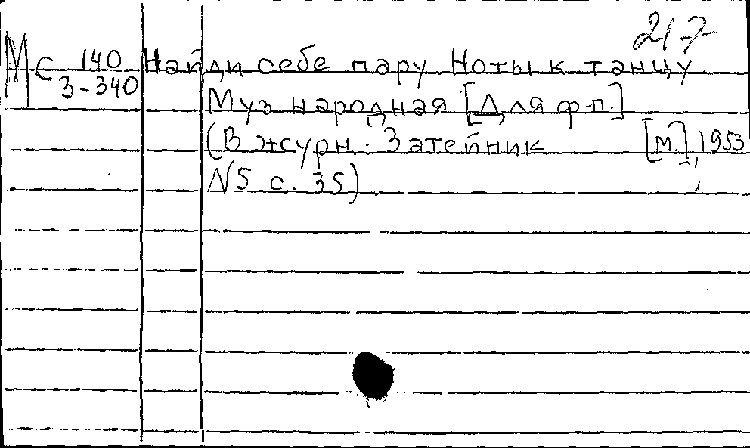 217
М С 140/3-340 Найди себе пару Ноты к танцу
Муз народная [Для ф.п.]
(В журн: Затейник [М.], 1953
N5 с. 35)